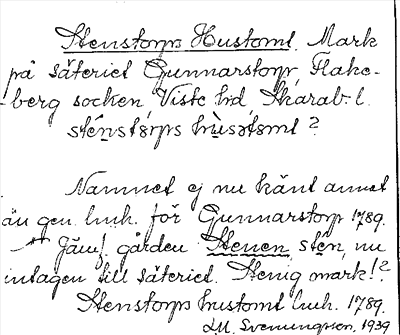 Stenstorps Hustomt. Mark
på säteriet Gunnarstorp, Flake-
berg socken, Viste hd, Skarab. l.
sténstorps husetomt?
Namnet ej nu känt annat
än gen. luh. för Gunnarstorp 1789.
Jämf. gården Stenen, stén, nu
intagen till säteriet. Stenig mark!?
Stenstorps hustomt luh. 1789.
J.M. Svenungsson, 1939